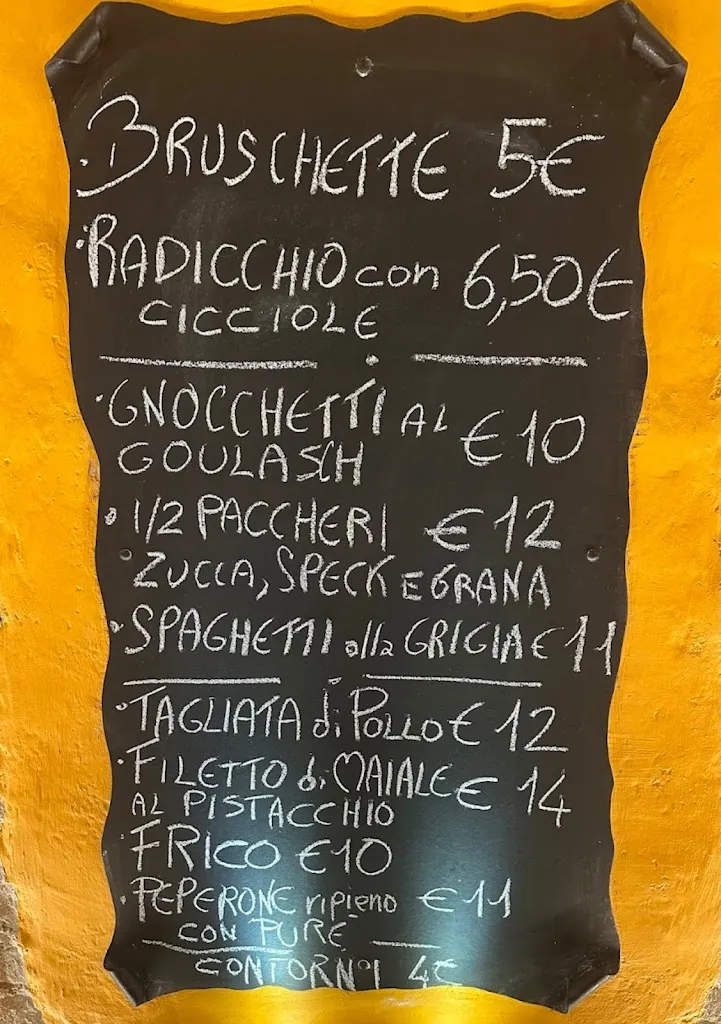 · BRUSCHETTE 5€
· RADICCHIO con 6,50€
CICCIOLE
· GNOCCHETTI AL € 10
GOULASCH
· 1/2 PACCHERI € 12
ZUCCA, SPECK E GRANA
· SPAGHETTI alla GRIGIA € 11
· TAGLIATA di POLLO € 12
· FILETTO di MAIALE € 14
AL PISTACCHIO
· FRICO €10
· PEPERONE ripieno € 11
CON PURÈ
CONTORNI 4€